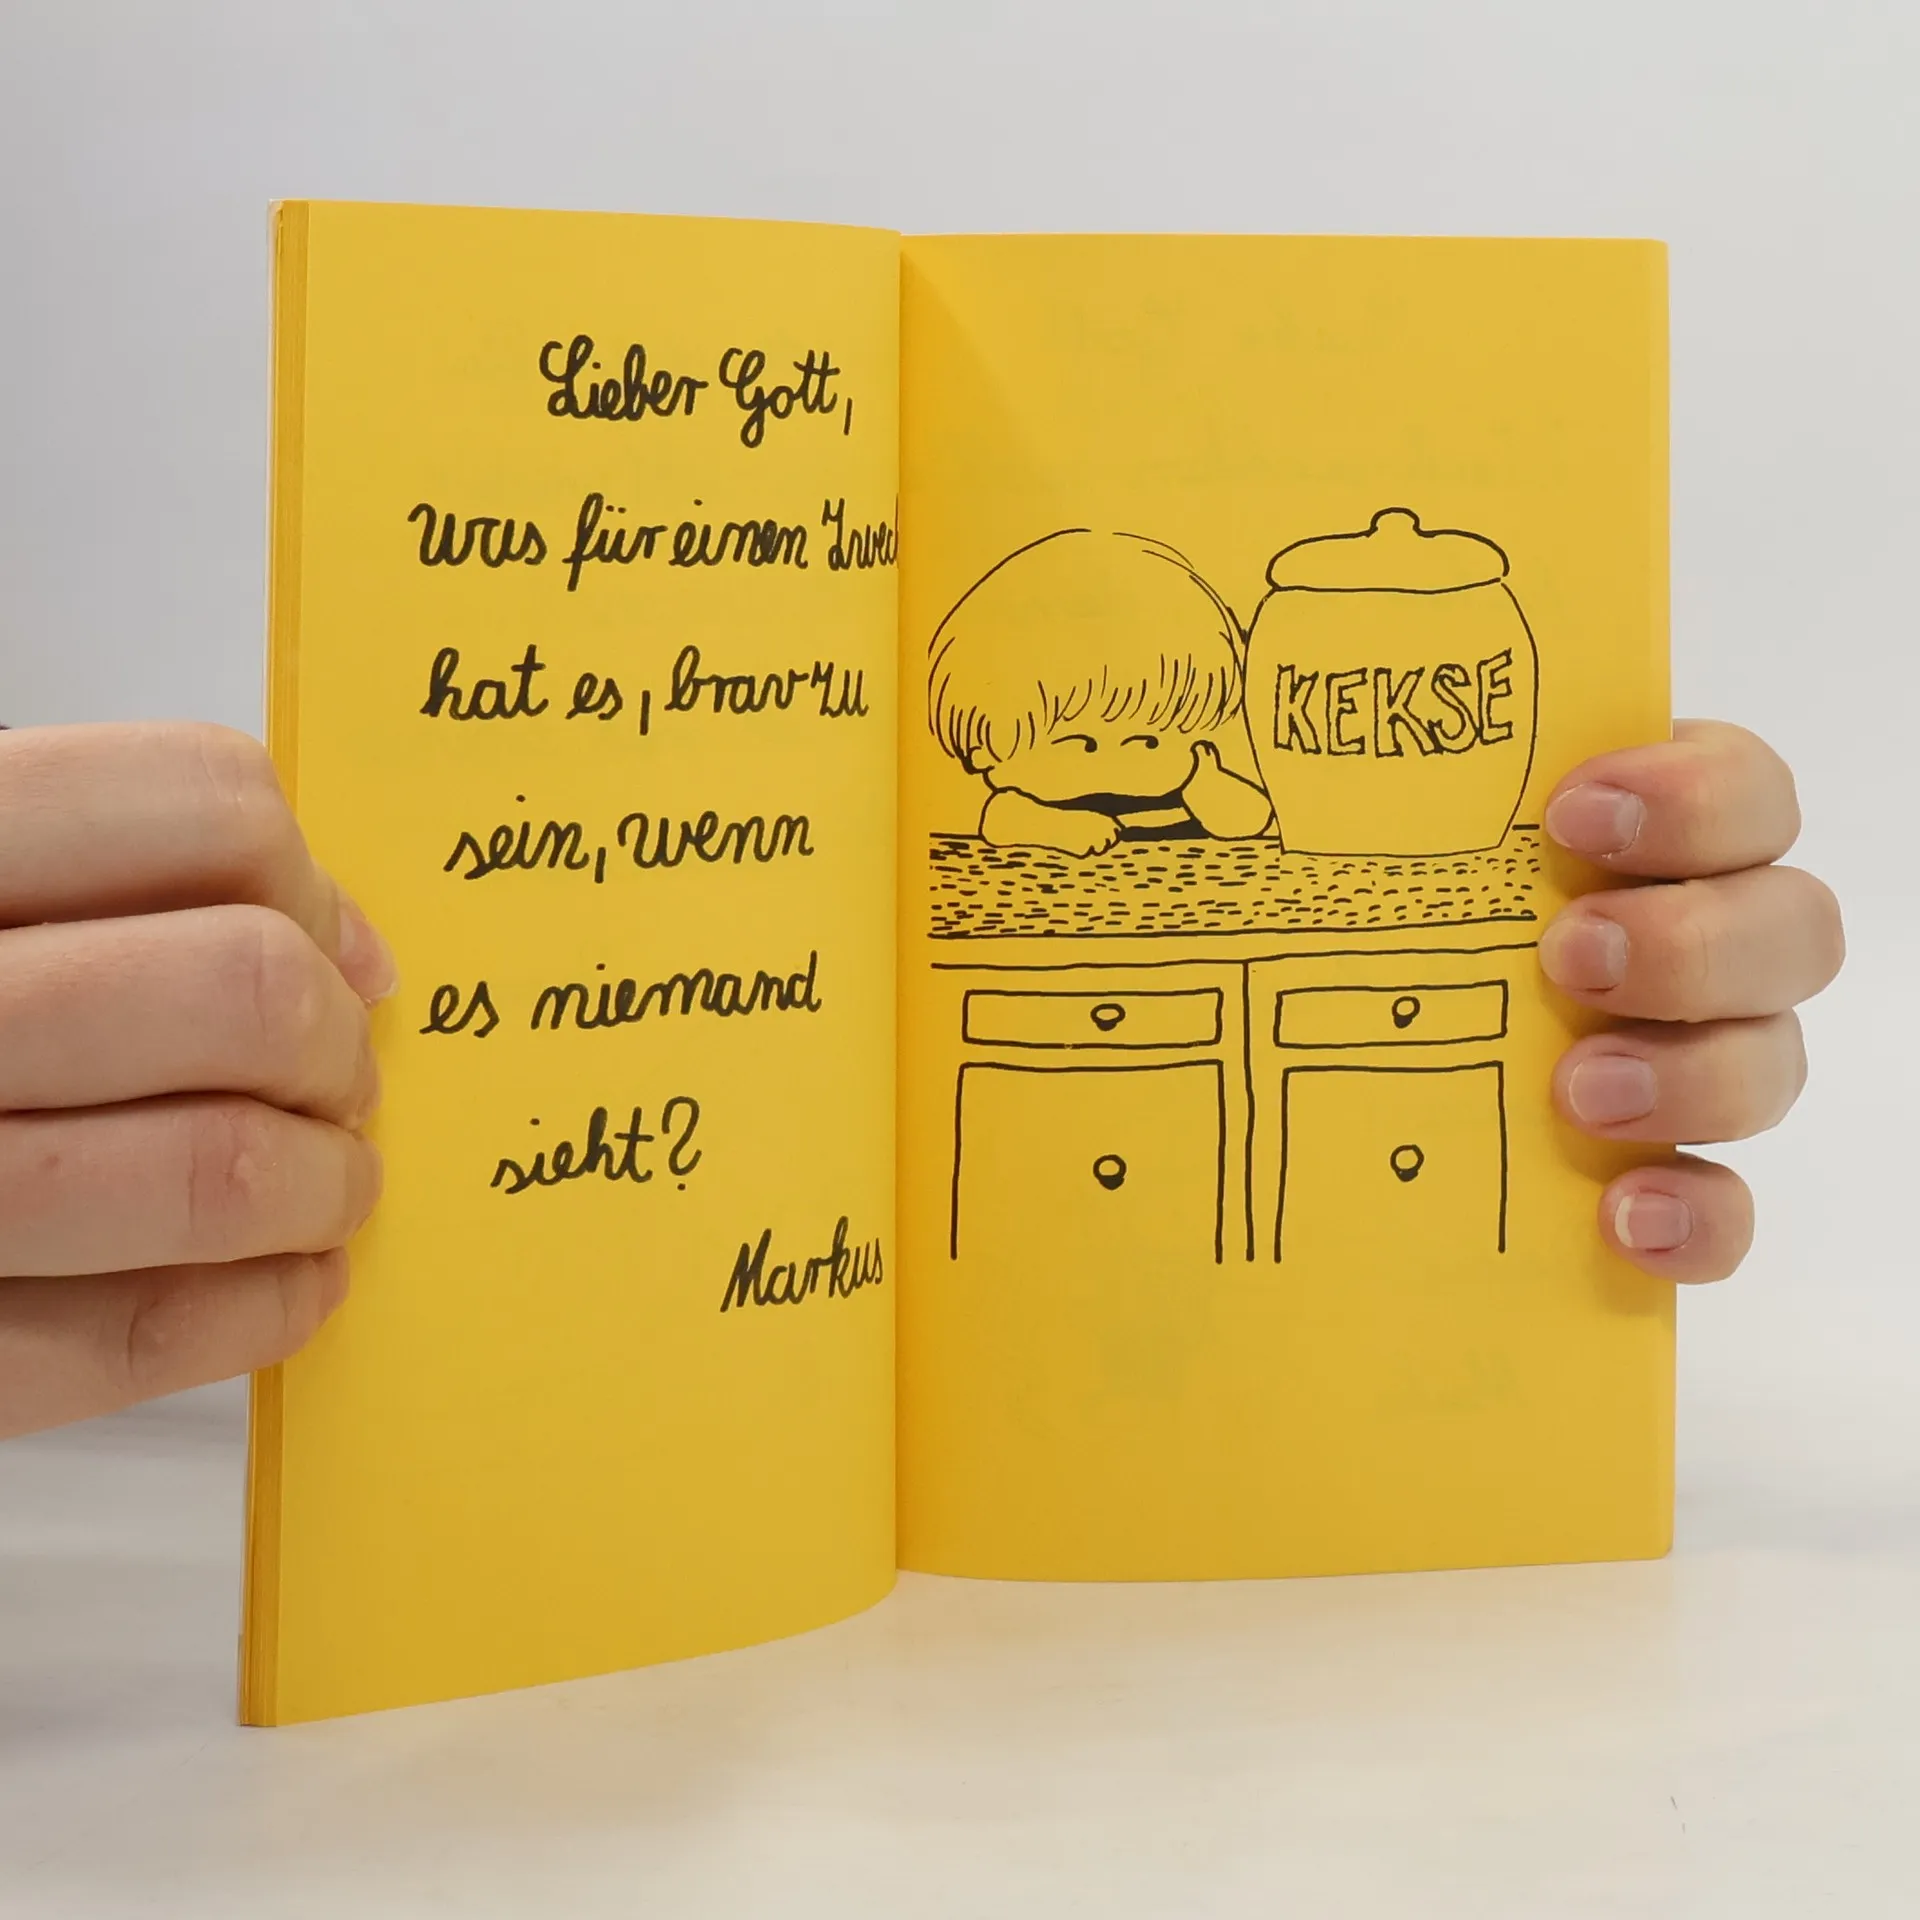 Lieber Gott,
was für einen Zweck
hat es, brav zu
sein, wenn
es niemand
sieht?
Markus
KEKSE